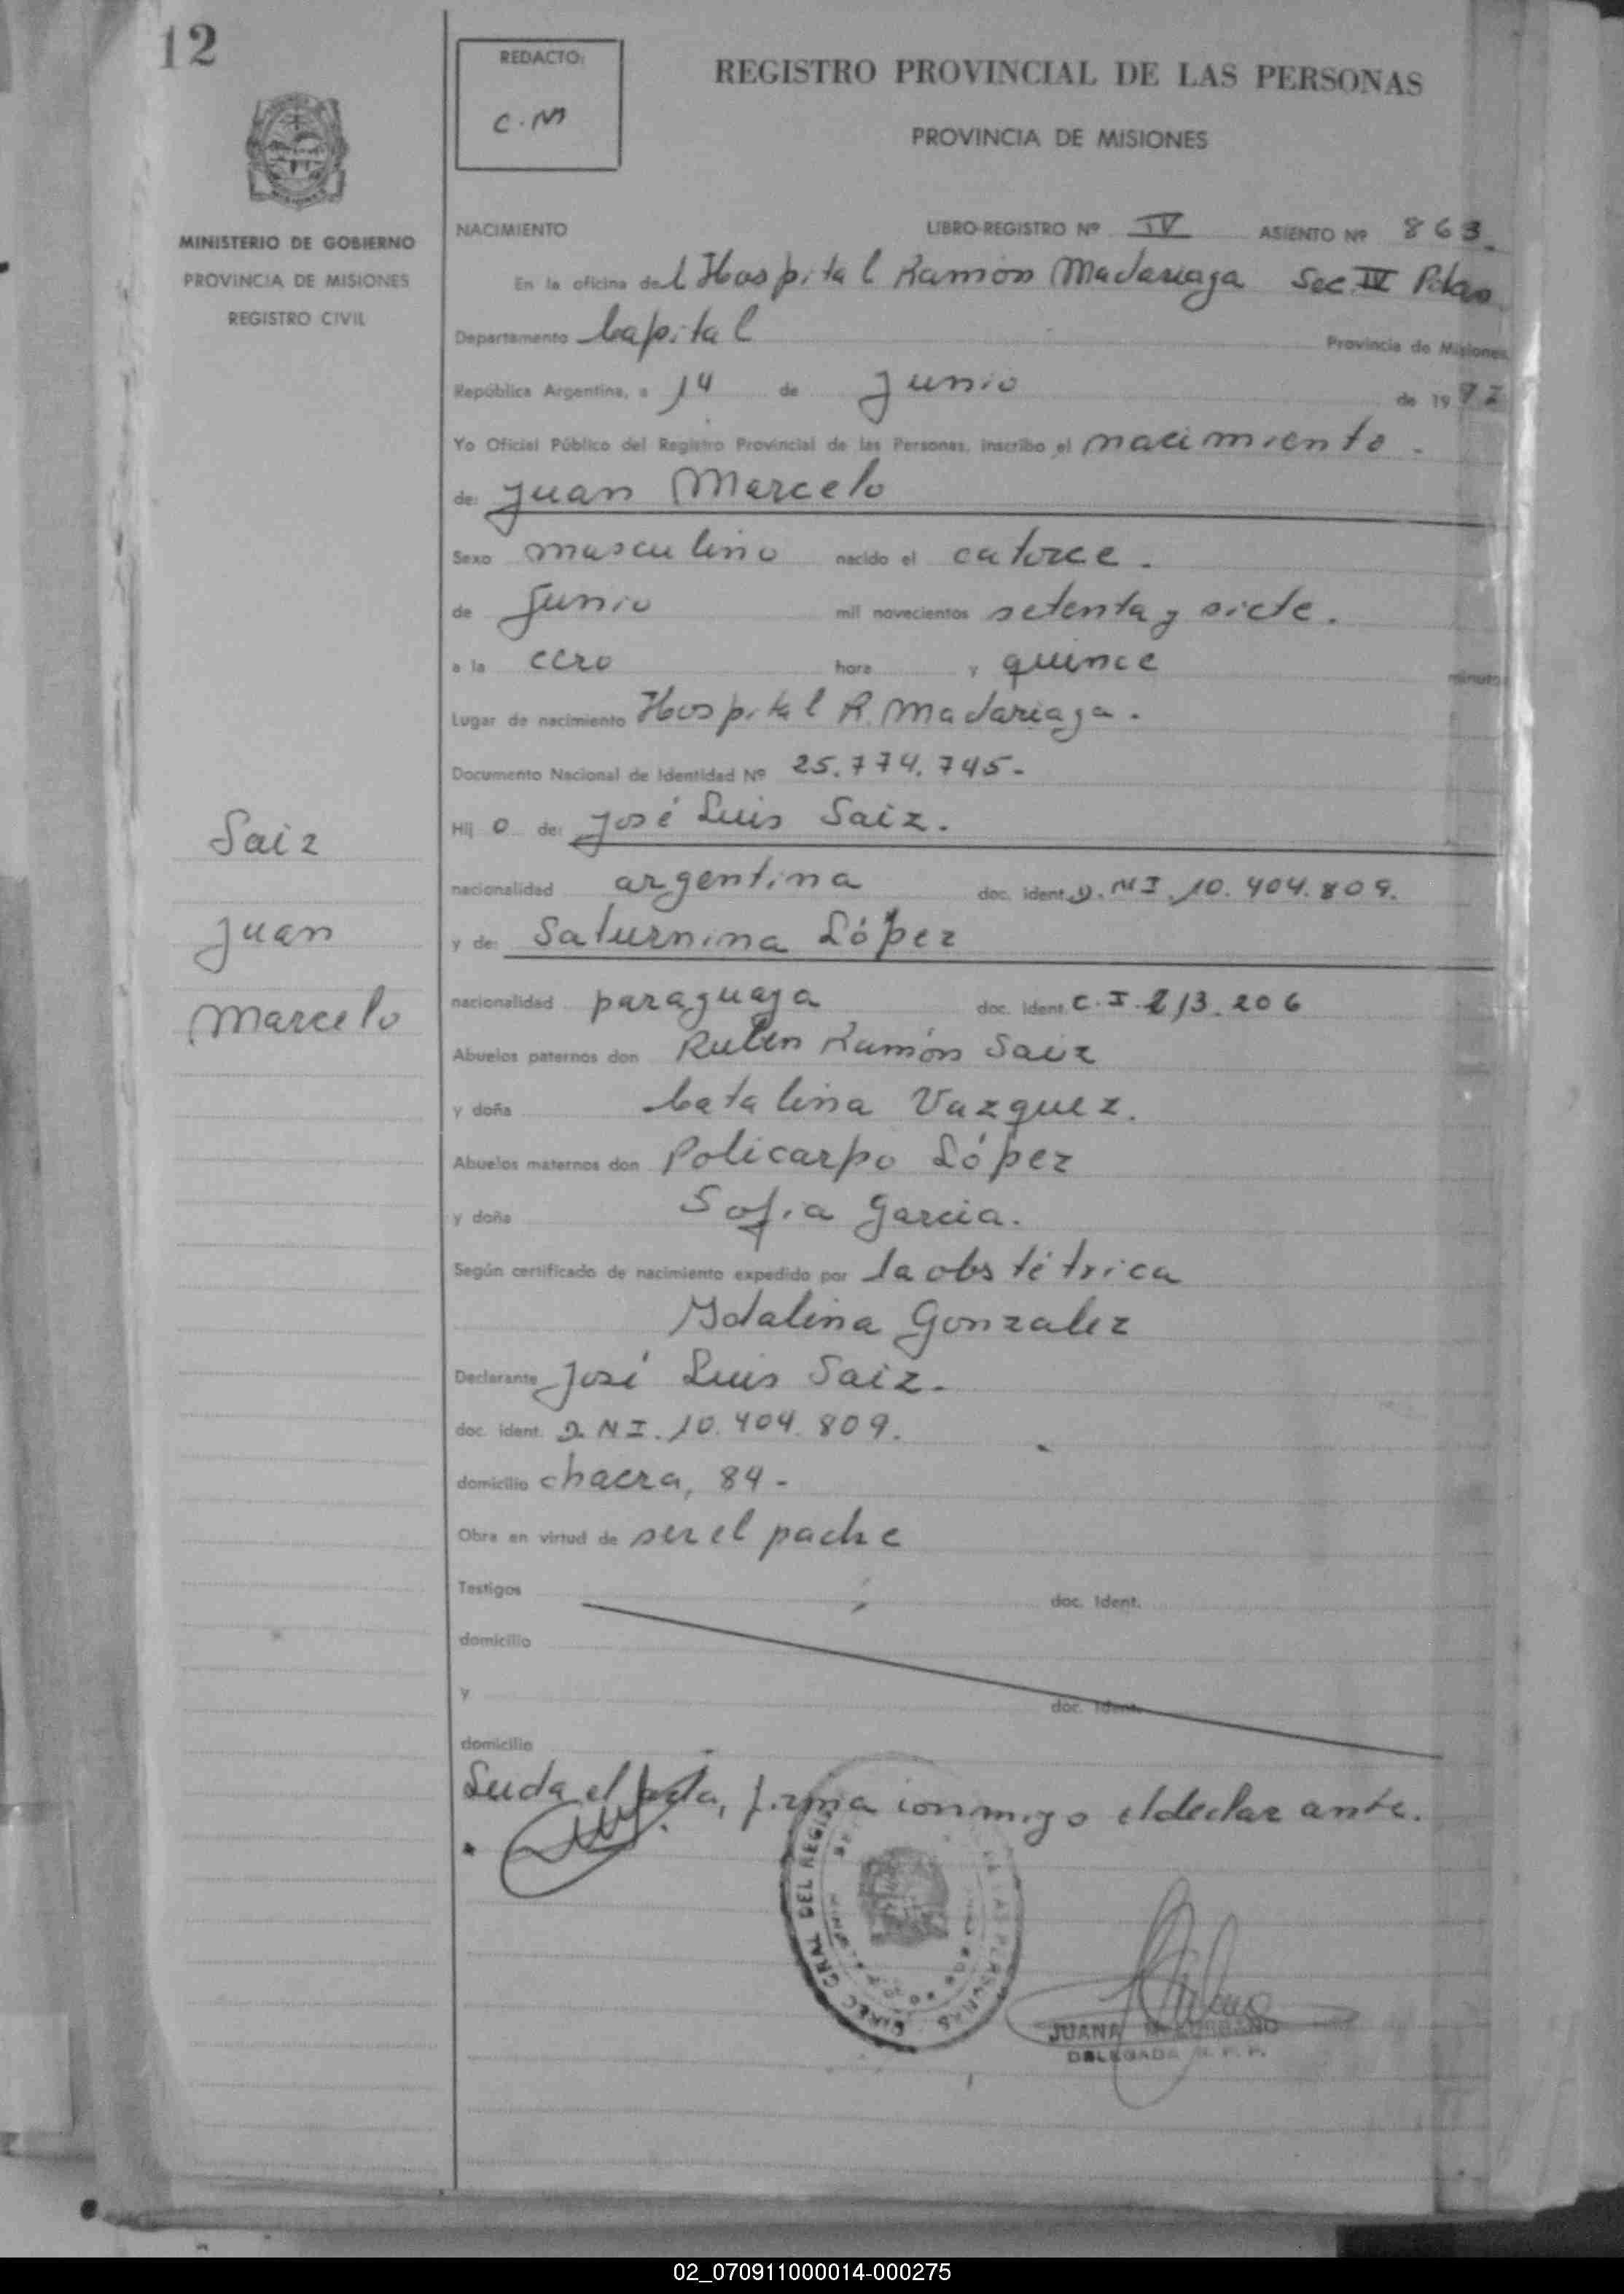 12
REDACTO:
C.M
REGISTRO PROVINCIAL DE LAS PERSONAS
PROVINCIA DE MISIONES
MINISTERIO DE GOBIERNO
PROVINCIA DE MISIONES
REGISTRO CIVIL
NACIMIENTO LIBRO-REGISTRO Nº IV ASIENTO Nº 863.
En la oficina del Hospital Ramón Madariaga Sec. IV Pdas
Departamento Capital Provincia de Misiones,
República Argentina, a 14 de Junio de 1977
Yo Oficial Público del Registro Provincial de las Personas, inscribo el nacimiento.
de: Juan Marcelo
Sexo masculino nacido el catorce.
de Junio mil novecientos setenta y siete.
a la cero hora y quince minutos
Lugar de nacimiento Hospital R. Madariaga.
Documento Nacional de Identidad Nº 25.774.745-
Saiz
Juan
Marcelo
Hij o de: José Luis Saiz.
nacionalidad argentina doc. ident. D.N.I. 10.404.809.
y de: Saturnina López
nacionalidad paraguaya doc. ident. C.I. 213.206
Abuelos paternos don Rubén Ramón Saiz
y doña Catalina Vazquez.
Abuelos maternos don Policarpo López
y doña Sofia Garcia.
Según certificado de nacimiento expedido por la obstétrica
Idalina Gonzalez
Declarante José Luis Saiz.
doc. ident. D.N.I. 10.404.809.
domicilio chacra, 84-
Obra en virtud de ser el padre
Testigos doc. Ident.
domicilio
y doc. Ident.
domicilio
Leida el acta, firma conmigo el declarante.
DIREC GRAL DEL REGIS LAS PERSONAS
JUANA
DELEGADA R. P. P.
02_070911000014-000275